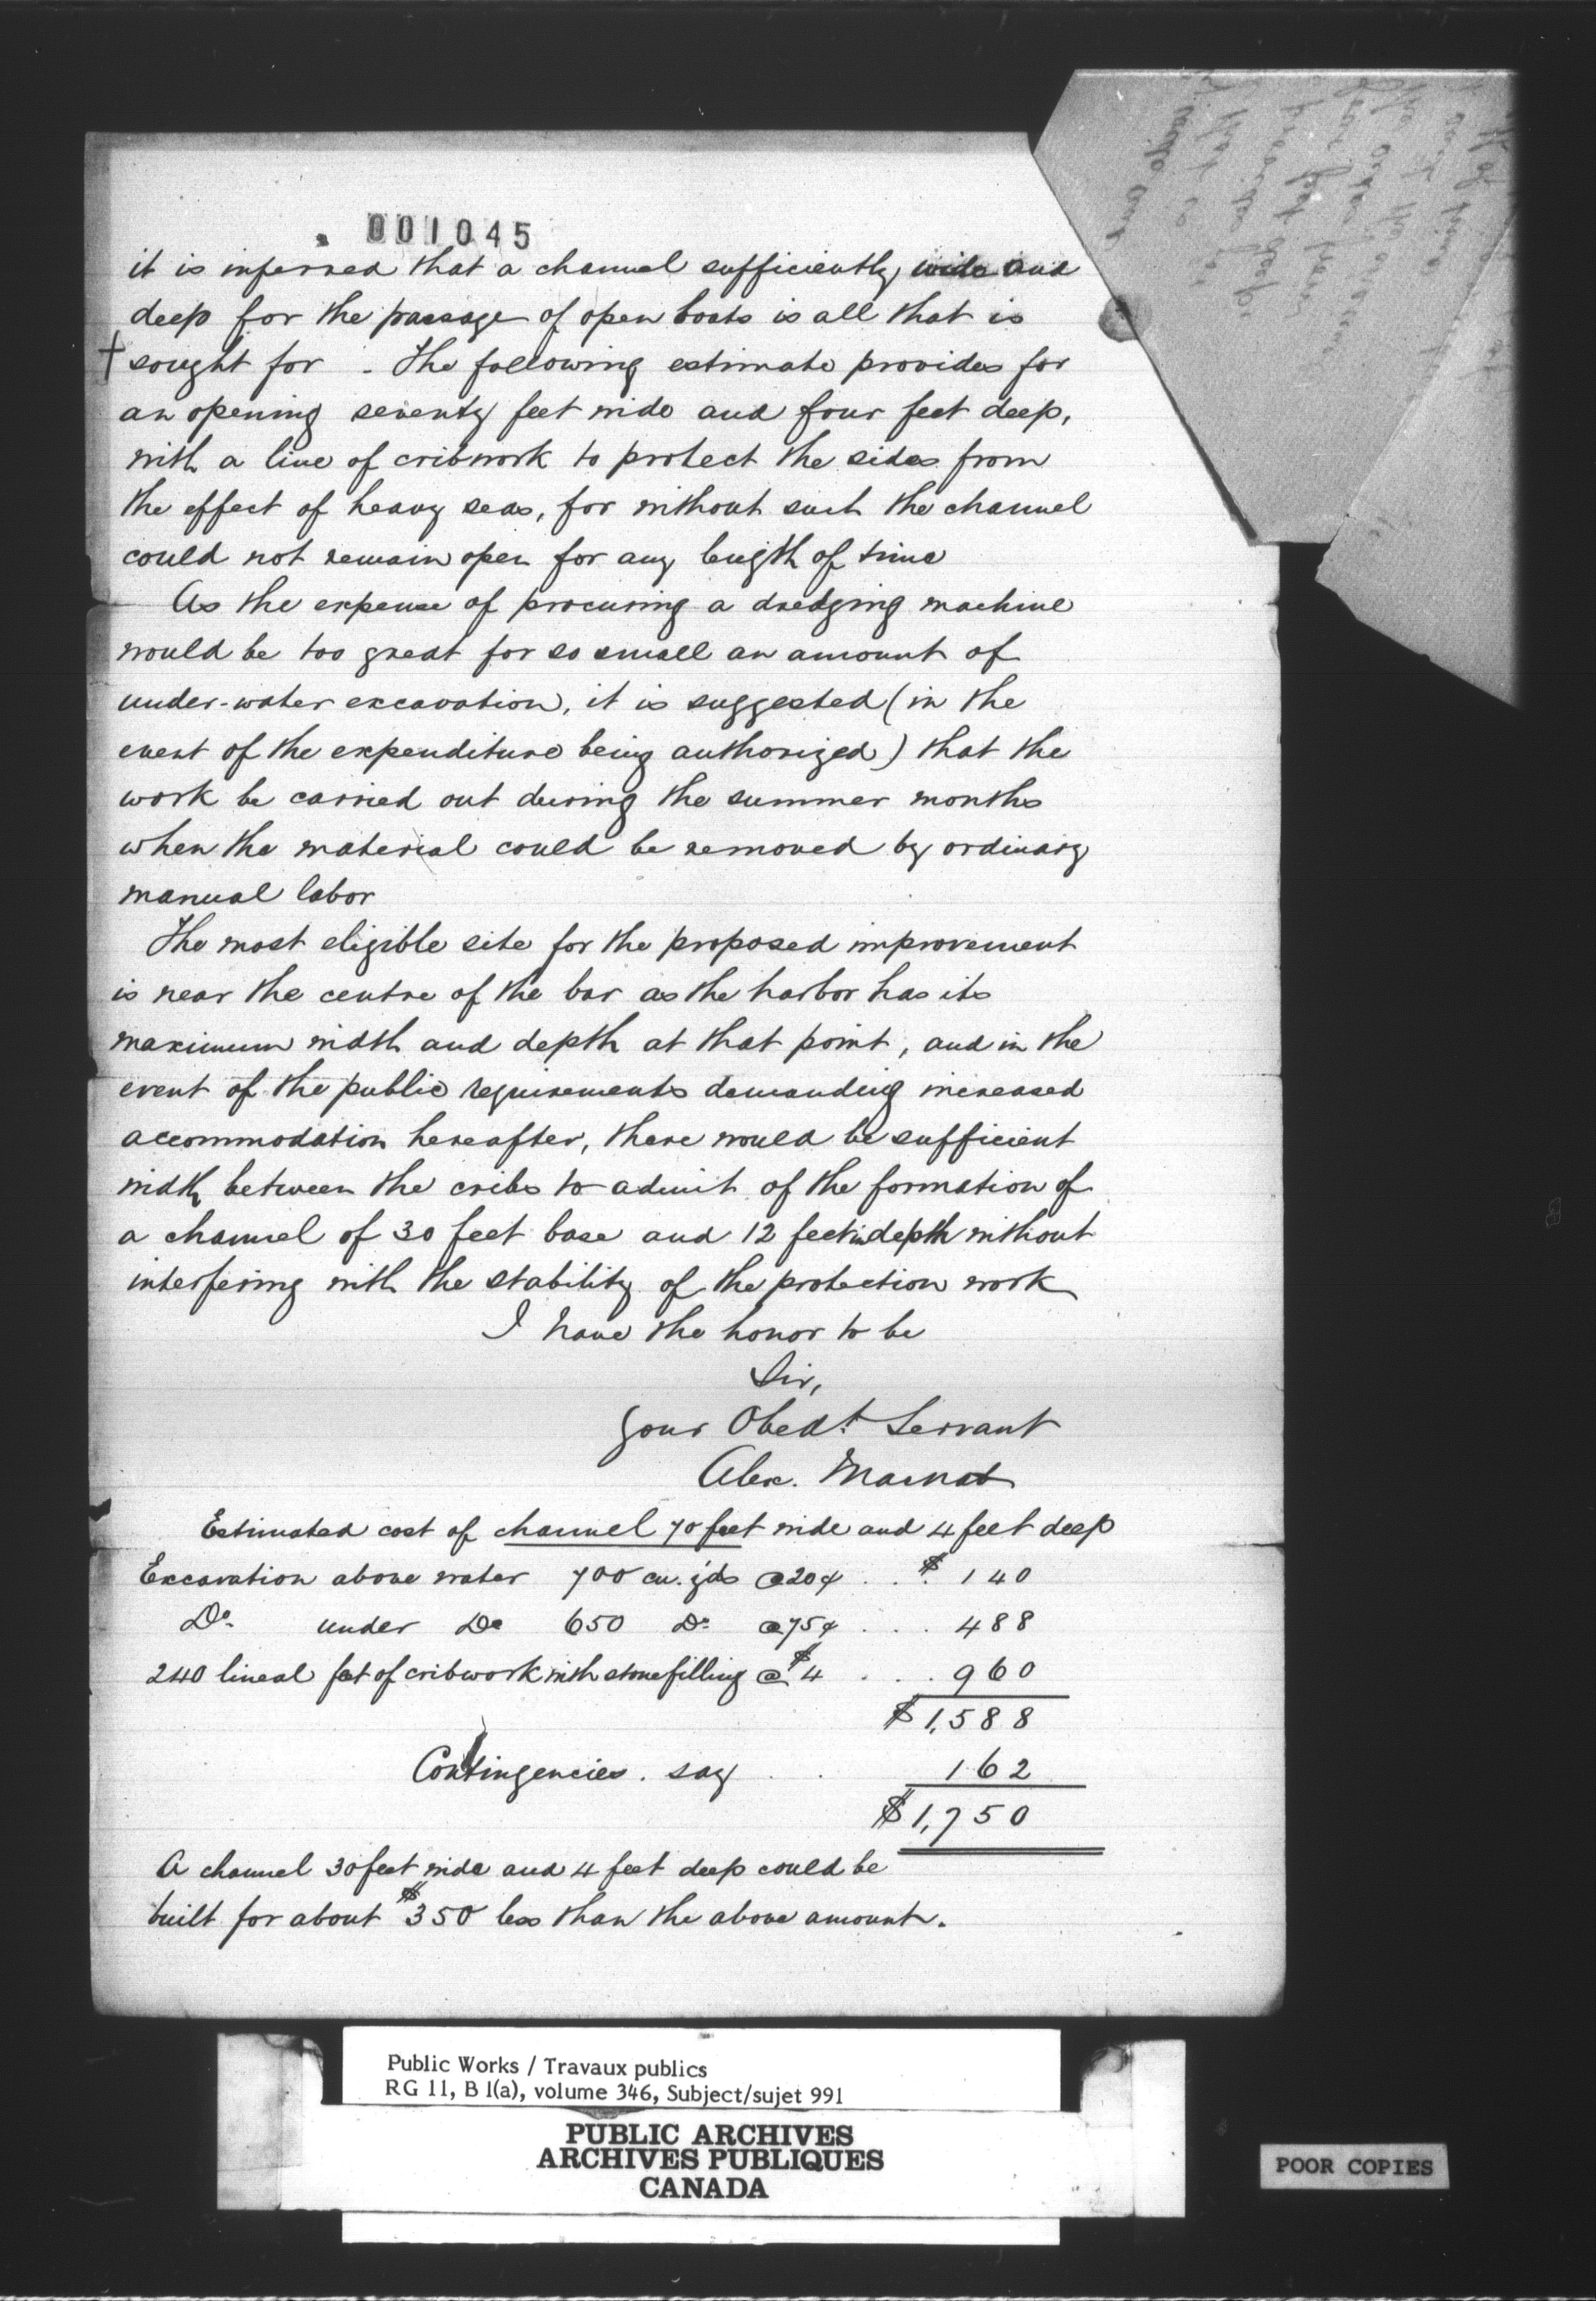 001045
it is inferred that a channel sufficiently wide and
deep for the passage of open boats is all that is
+ sought for - The following estimate provides for
an opening seventy feet wide and four feet deep,
with a line of cribwork to protect the sides from
the effect of heavy seas, for without such the channel
could not remain open for any length of time
As the expense of procuring a dredging machine
would be too great for so small an amount of
under-water excavation, it is suggested (in the
event of the expenditure being authorized) that the
work be carried out during the summer months
when the material could be removed by ordinary
manual labor
The most eligible site for the proposed improvement
is near the centre of the bar as the harbor has its
maximum width and depth at that point, and in the
event of the public requirements demanding increased
accommodation hereafter, there would be sufficient
width between the cribs to admit of the formation of
a channel of 30 feet base and 12 feet in depth without
interfering with the stability of the protection work
I have the honor to be
Sir,
Your Obedt. Servant
Alex.
Estimated cost of channel 70 feet wide and 4 feet deep
Excavation above water 700 cu. yds @ 20¢ . . . $ 140
Do. under Do 650 Do @ 75¢ . . . 488
240 lineal feet of cribwork with stone filling @ $4 . . . 960
$1,588
Contingencies . say . . 162
$1,750
A channel 30 feet wide and 4 feet deep could be
built for about $350 less than the above amount.
Public Works / Travaux publics
RG 11, B 1(a), volume 346, Subject/sujet 991
PUBLIC ARCHIVES
ARCHIVES PUBLIQUES
CANADA
POOR COPIES